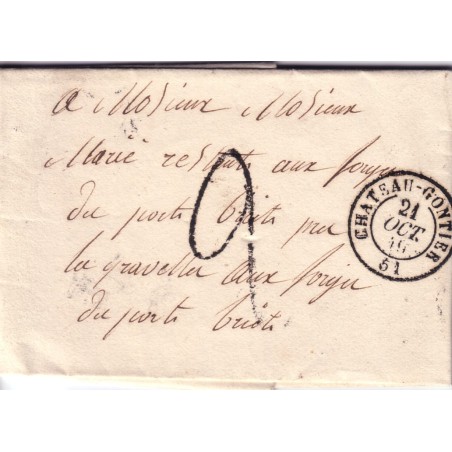 a Mosieux Mosieux
Marie restait aux forges
du porti briet pre
la gravelle aux forge
du porti briet
CHATEAU-GONTIER
21
OCT.
46
51